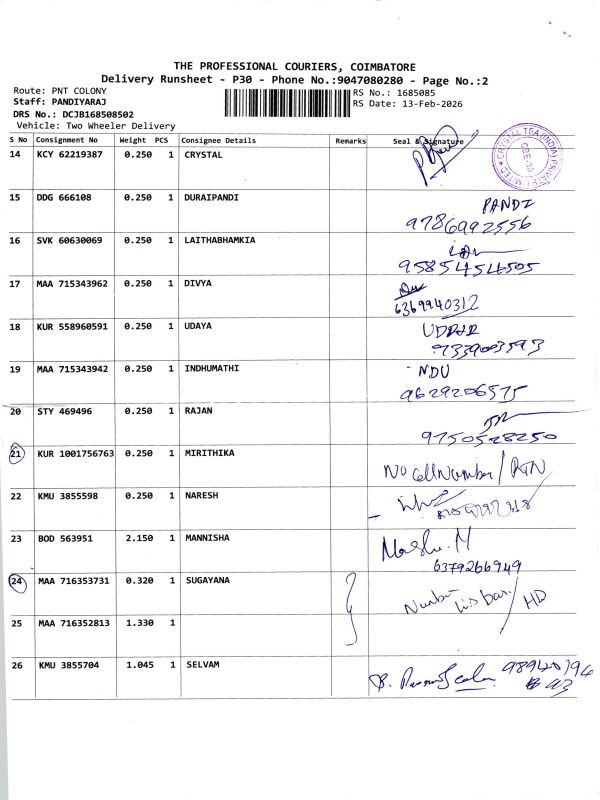 THE PROFESSIONAL COURIERS, COIMBATORE
Delivery Runsheet - P30 - Phone No.:9047080280 - Page No.:2
Route: PNT COLONY
RS No.: 1685085
Staff: PANDIYARAJ
RS Date: 13-Feb-2026
DRS No.: DCJB168508502
Vehicle: Two Wheeler Delivery
S No Consignment No Weight PCS Consignee Details Remarks Seal & Signature
14 KCY 62219387 0.250 1 CRYSTAL
CRYSTAL TEA (INDIA) PRIVATE LIMITED
15 DDG 666108 0.250 1 DURAIPANDI PANDI
9786992556
16 SVK 60630069 0.250 1 LAITHABHAMKIA
9585454505
17 MAA 715343962 0.250 1 DIVYA
6369940312
18 KUR 558960591 0.250 1 UDAYA
19 MAA 715343942 0.250 1 INDHUMATHI NDU
9629206575
20 STY 469496 0.250 1 RAJAN
9750528250
21 KUR 1001756763 0.250 1 MIRITHIKA
No Cell Number / RTN
22 KMU 3855598 0.250 1 NARESH
23 BOD 563951 2.150 1 MANNISHA
6379266949
24 MAA 716353731 0.320 1 SUGAYANA
25 MAA 716352813 1.330 1
26 KMU 3855704 1.045 1 SELVAM